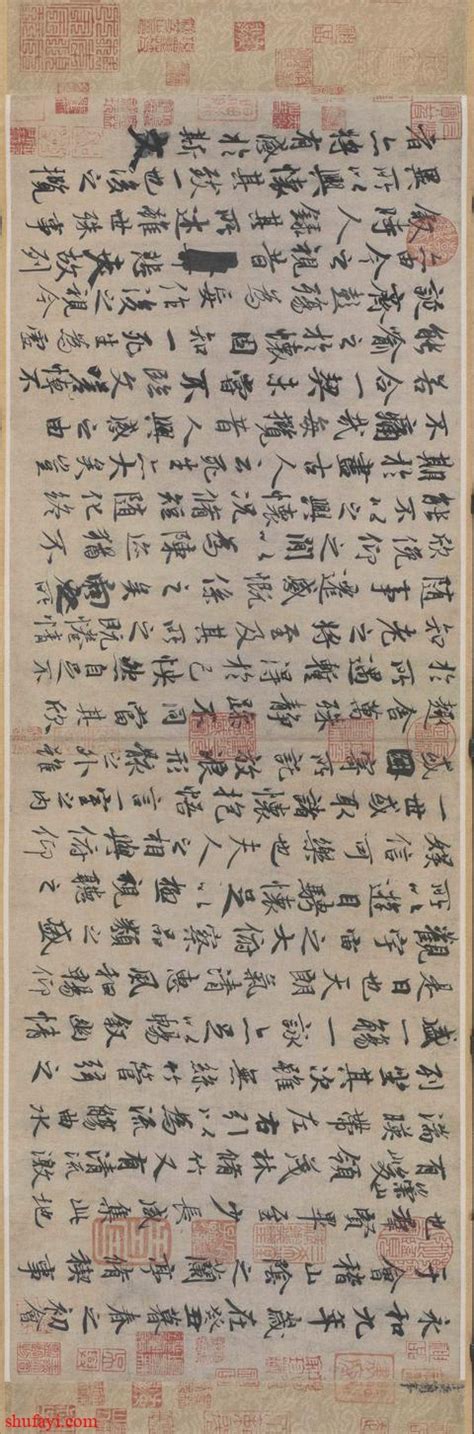 永和九年歲在癸丑暮春之初會
于會稽山陰之蘭亭脩稧事
也羣賢畢至少長咸集此地
有崇山峻領茂林脩竹又有清流激
湍暎帶左右引以為流觴曲水
列坐其次雖無絲竹管弦之
盛一觴一詠亦足以暢敘幽情
是日也天朗氣清惠風和暢仰
觀宇宙之大俯察品類之盛
所以遊目騁懷足以極視聽之
娛信可樂也夫人之相與俯仰
一世或取諸懷抱悟言一室之內
或因寄所託放浪形骸之外雖
趣舍萬殊靜躁不同當其欣
於所遇暫得於己怏然自足不
知老之將至及其所之既惓情
隨事遷感慨係之矣向之所
欣俛仰之閒以為陳迹猶不
能不以之興懷況脩短隨化終
期於盡古人云死生亦大矣豈
不痛哉每攬昔人興感之由
若合一契未嘗不臨文嗟悼不
能喻之於懷固知一死生為虛
誕齊彭殤為妄作後之視今
亦由今之視昔悲夫故列
敘時人錄其所述雖世殊事
異所以興懷其致一也後之攬
者亦將有感於斯文
shufayi.com